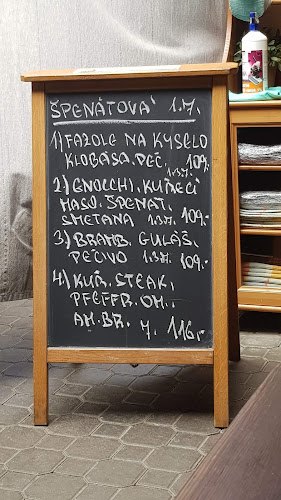 ŠPENÁTOVÁ 1.7.
1) FAZOLE NA KYSELO
KLOBÁSA. PEČ. 109.-
1.3.7.
2) GNOCCHI. KUŘECÍ
MASO. ŠPENÁT.
SMETANA 1.3.7. 109.-
3) BRAMB. GULÁŠ.
PEČIVO 1.3.7. 109.-
4) KUŘ. STEAK.
PFEFFR. OM..
AM. BR. 7. 116.-